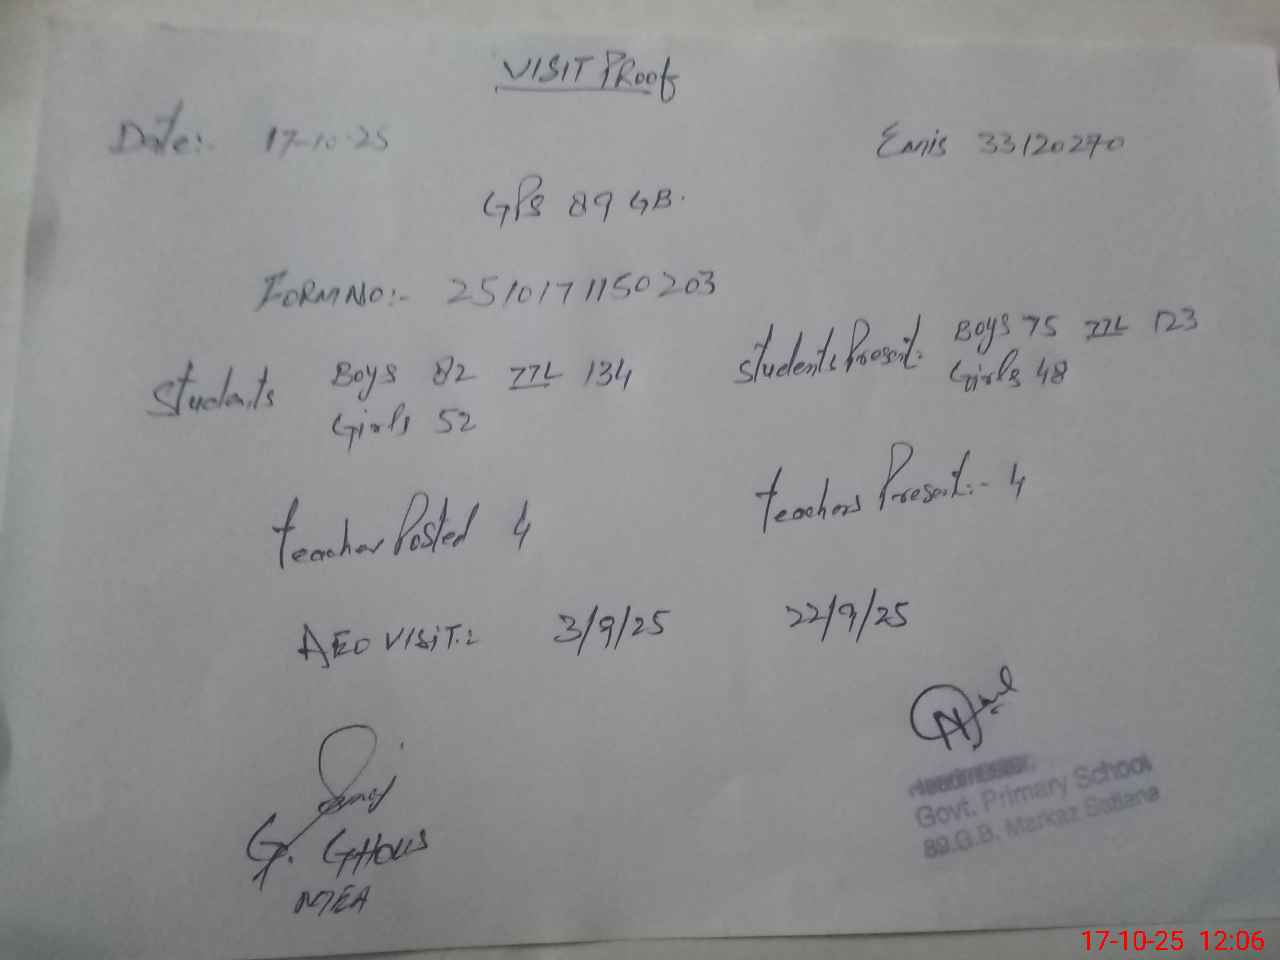 VISIT PRoof
Date:- 17-10-25 Emis 33120270
GPS 89 GB.
FORM NO:- 251017 1150203
Students Boys 82 TTL 134
Girls 52
Students Present:- Boys 75 TTL 123
Girls 48
teacher Posted 4
teachers Present:- 4
AEO VISIT.: 3/9/25 22/9/25
G. GHOUS
MEA
Govt. Primary School
89.G.B. Markaz Satiana
17-10-25 12:06